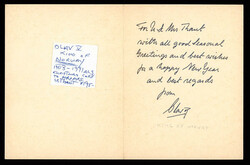 OLAV V
KING OF
NORWAY
1903-1991
CHRISTMAS CARD
For U and Mrs Thant
with all good Seasonal
Greetings and best wishes
for a happy New Year
and best regards
from
Olav